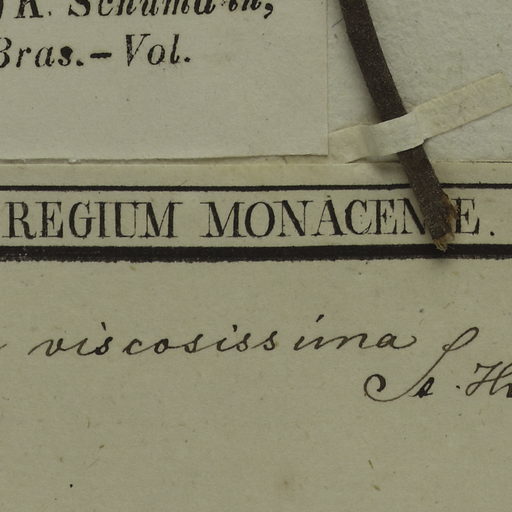 K. Schumann,
Bras.—Vol.
REGIUM MONACENSE.
viscosissima
St. H